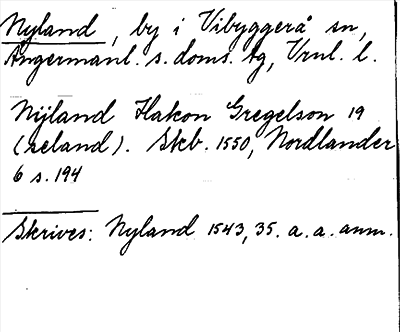 Nyland, by i Vibyggerå sn,
Ångermanl. s. doms. tg, Vrnl. l.
Nÿland Hakon Gregelson 19
(seland). Skb. 1550, Nordlander
6 s. 194
Skrives: Nyland 1543, 35. a. a. anm.